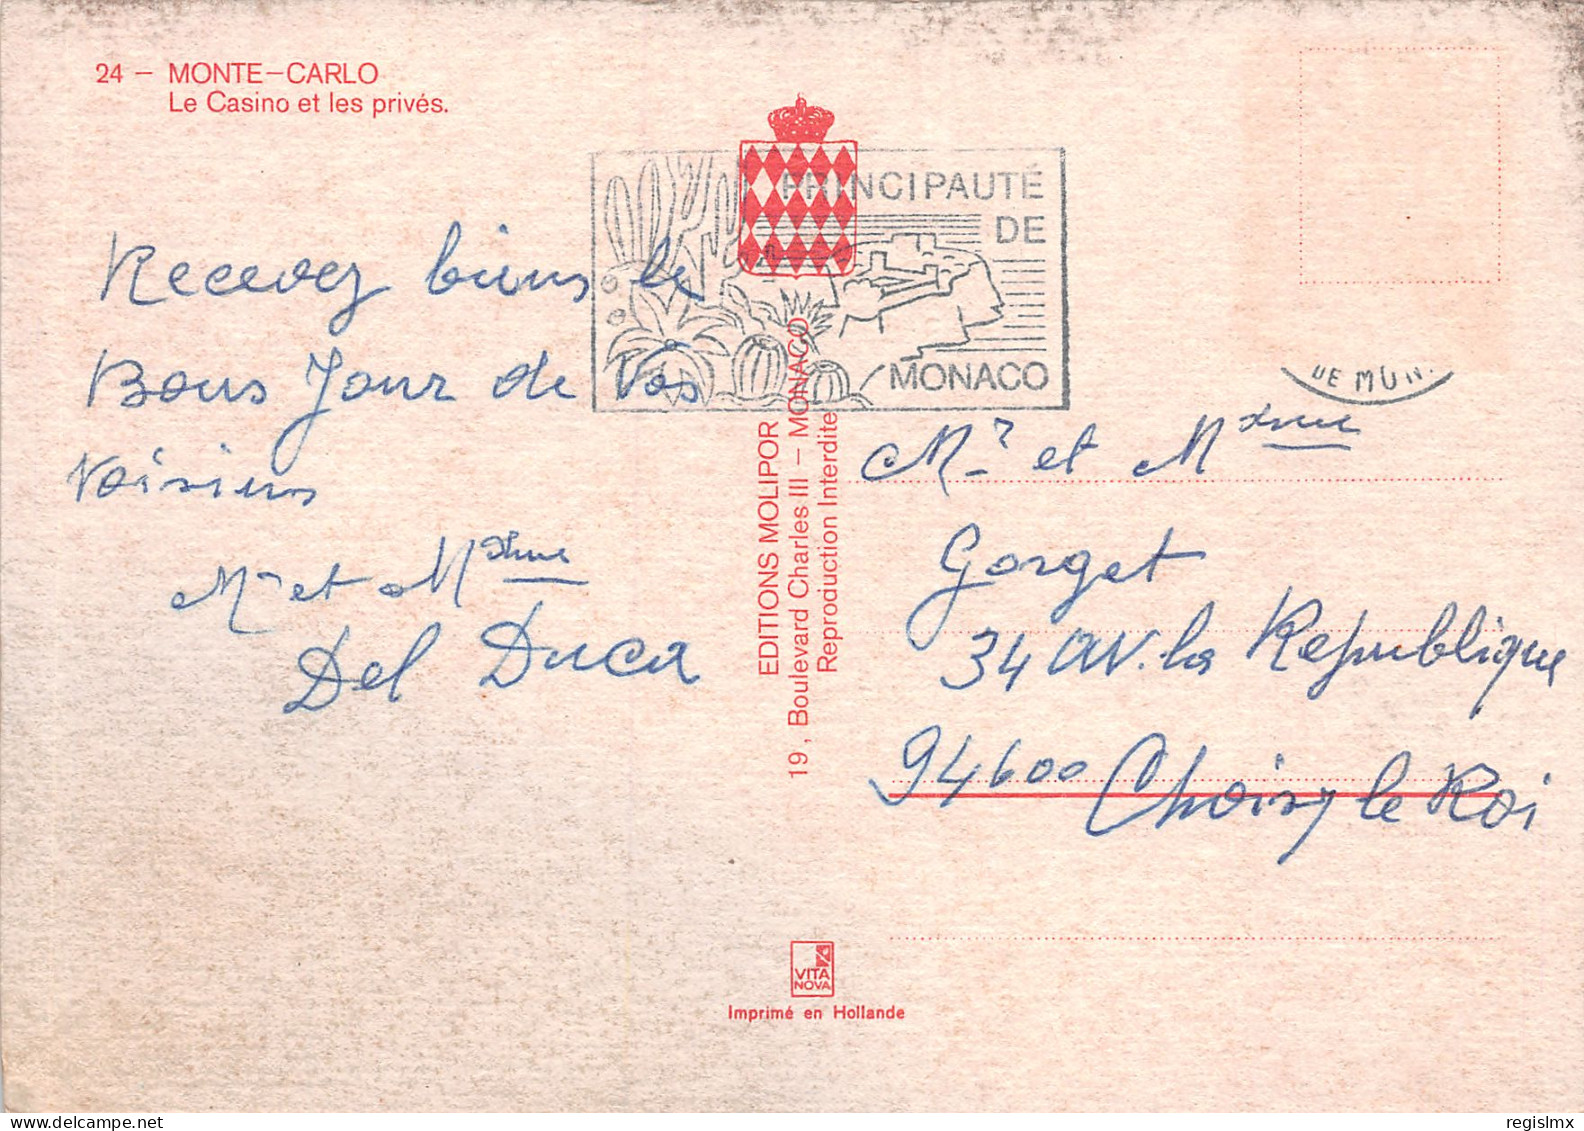 24 – MONTE–CARLO
Le Casino et les privés.
PRINCIPAUTÉ
DE
MONACO
Recevez biens le
Bons Jour de Vos
Voisins
Mr et Mdme
Del Duca
EDITIONS MOLIPOR
19, Boulevard Charles III – MONACO
Reproduction Interdite
DE MON.
Mr et Mdme
Gorget
34 av. la Republique
94600 Choisy le Roi
VITA
NOVA
Imprimé en Hollande
regislmx
delcampe.net